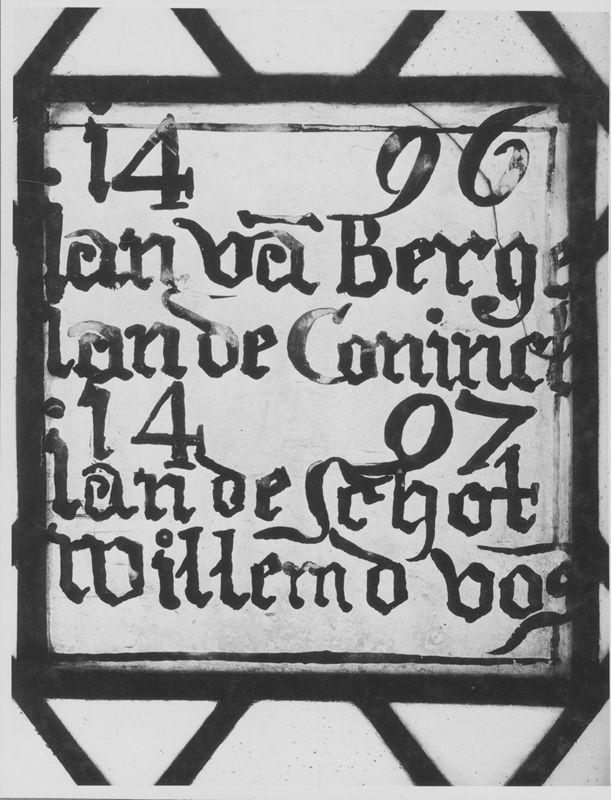 i4 96
Ian vā Berge
Ian de Coninck
i4 97
ian de schot
willem d vos